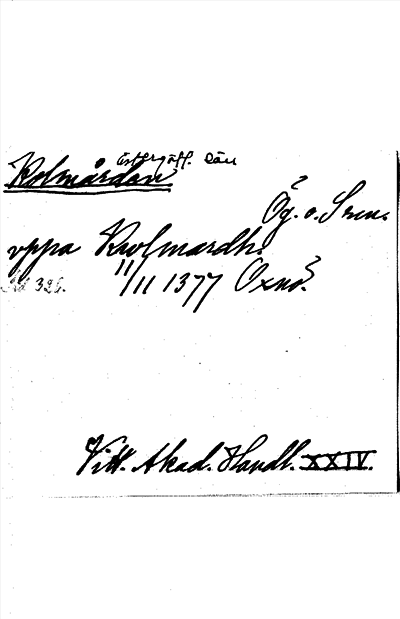 Östergötl. län
Kolmården
Ög. o. Srm.
vppa Kwlmardh.
Sd 326. 11/11 1377 Oxnö.
Vitt. Akad. Handl. XXIV.